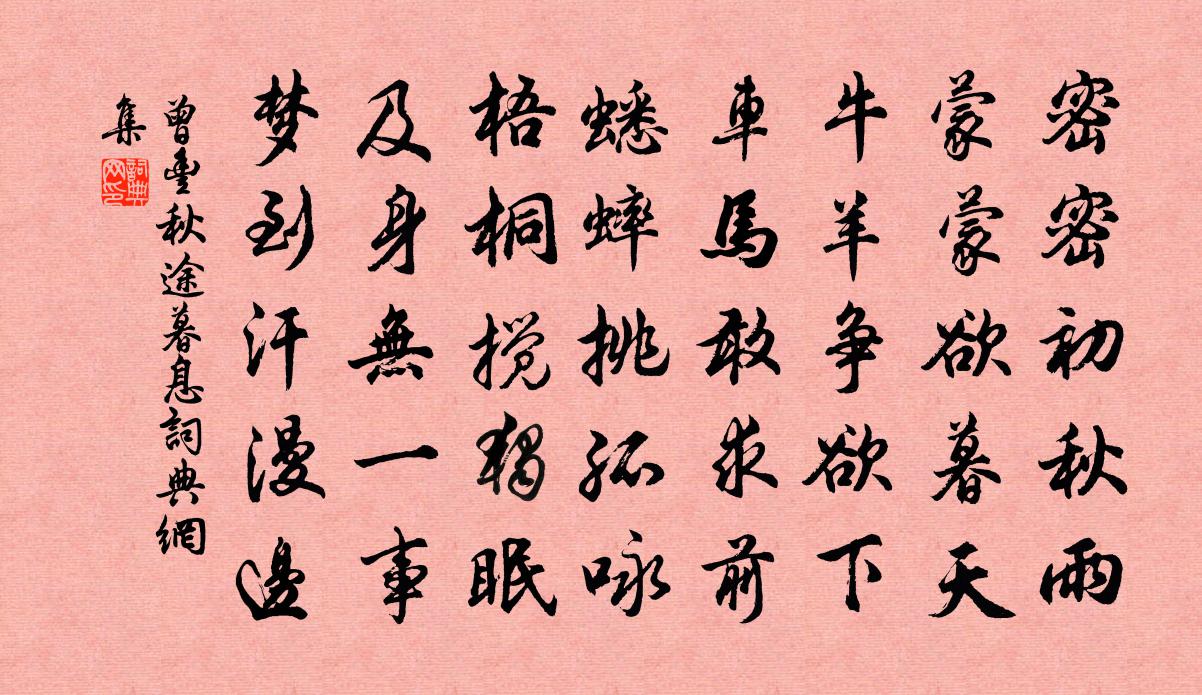 密密初秋雨
蒙蒙欲暮天
牛羊争欲下
車馬敢求前
蟋蟀挑孤咏
梧桐搅独眠
及身無一事
梦到汗漫邊
曾豊秋途暮息詞典網
集
詞典
网印